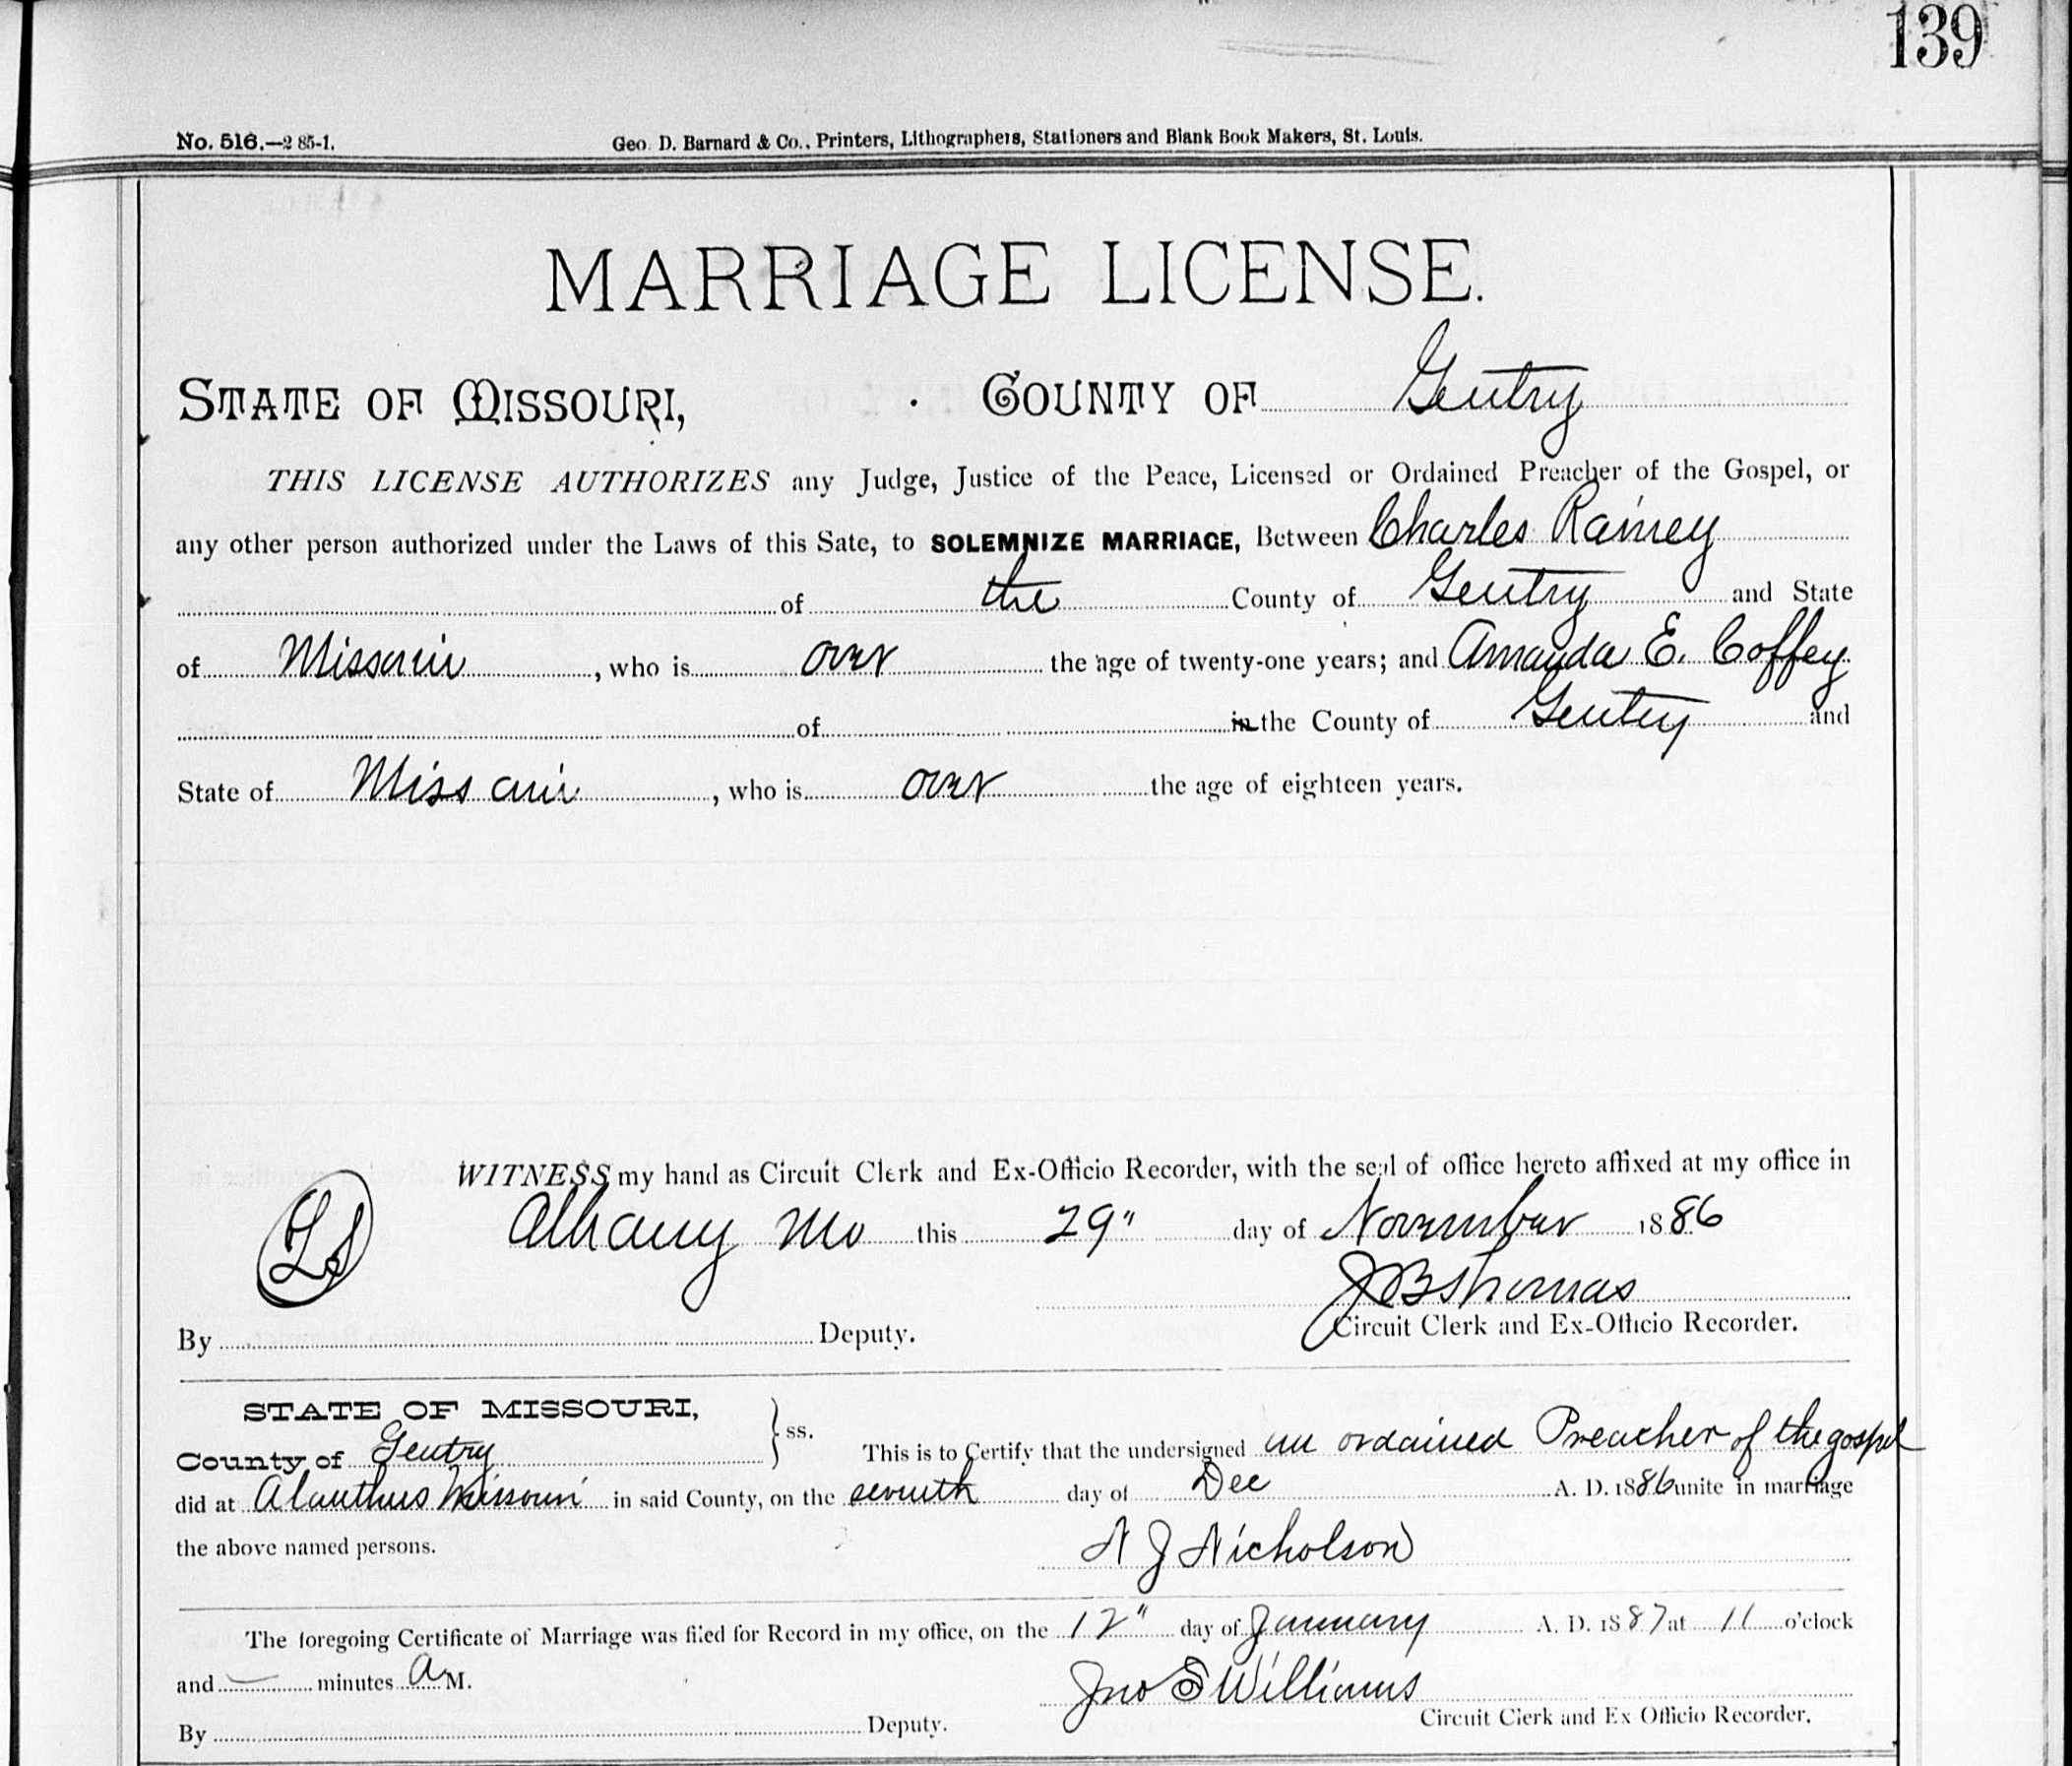 139
No. 516.—2 85-1. Geo. D. Barnard & Co., Printers, Lithographers, Stationers and Blank Book Makers, St. Louis.
MARRIAGE LICENSE.
STATE OF MISSOURI, COUNTY OF Gentry
THIS LICENSE AUTHORIZES any Judge, Justice of the Peace, Licensed or Ordained Preacher of the Gospel, or
any other person authorized under the Laws of this Sate, to SOLEMNIZE MARRIAGE, Between Charles Rainey
of the County of Gentry and State
of Missouri, who is over the age of twenty-one years; and Amanda E. Coffey
of in the County of Gentry and
State of Missouri, who is over the age of eighteen years.
WITNESS my hand as Circuit Clerk and Ex-Officio Recorder, with the seal of office hereto affixed at my office in
LS Albany Mo this 29" day of November 1886
J B Thomas
By Deputy. Circuit Clerk and Ex-Officio Recorder.
STATE OF MISSOURI,
County of Gentry } ss. This is to Certify that the undersigned an ordained Preacher of the gospel
did at Alanthus Missouri in said County, on the seventh day of Dec A. D. 1886 unite in marriage
the above named persons. N J Nicholson
The foregoing Certificate of Marriage was filed for Record in my office, on the 12" day of January A. D. 1887 at 11 o'clock
and — minutes A M. Jno S Williams
By Deputy. Circuit Clerk and Ex Officio Recorder.